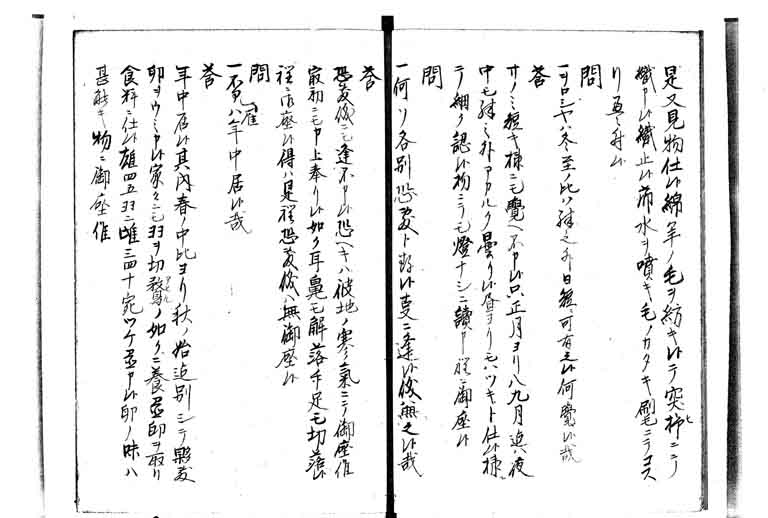 是又見物仕候綿羊ノ毛ヲ紡キ候テ突棒ニニノ
織申候織止候節水ヲ噴キ毛ノカタキ刷毛ニテコス
リ
問
一ヲロシヤハ冬至ノ比ハ殊之外日短ニ可有之候何覚候哉
答
サノミ短キ様ニモ覚ヘ不申候只正月ヨリ八九月迄ハ夜
中モ殊ノ外アカルク曇リ候昼ヨリモハツキト仕候様
ニテ細ク認候物ニテモ燈ナシニ読申程ニ御座候
問
一何ソ各別恐敷ト存候事ニ逢候儀無之候哉
答
恐敷儀ニモ逢不申候恐ヘキハ彼地ノ寒気ニテ御座候
最初ニモ申上奉リ候如ク耳鼻モ解落手足モ切落候
程ニ御座候得ハ是程恐敷儀ハ無御座候
問
一不見ハ年中居候哉
答
年中居候其内春ノ中比ヨリ秋ノ始迄別シテ夥敷
卵ヲウミ申候家々ニモ羽ヲ切リノ如クニ養置卵ヲ取リ
食料ニ仕候雄四五羽ニ雌三四十宛ツケ置申候卵ノ味ハ
甚能キ物ニ御座候